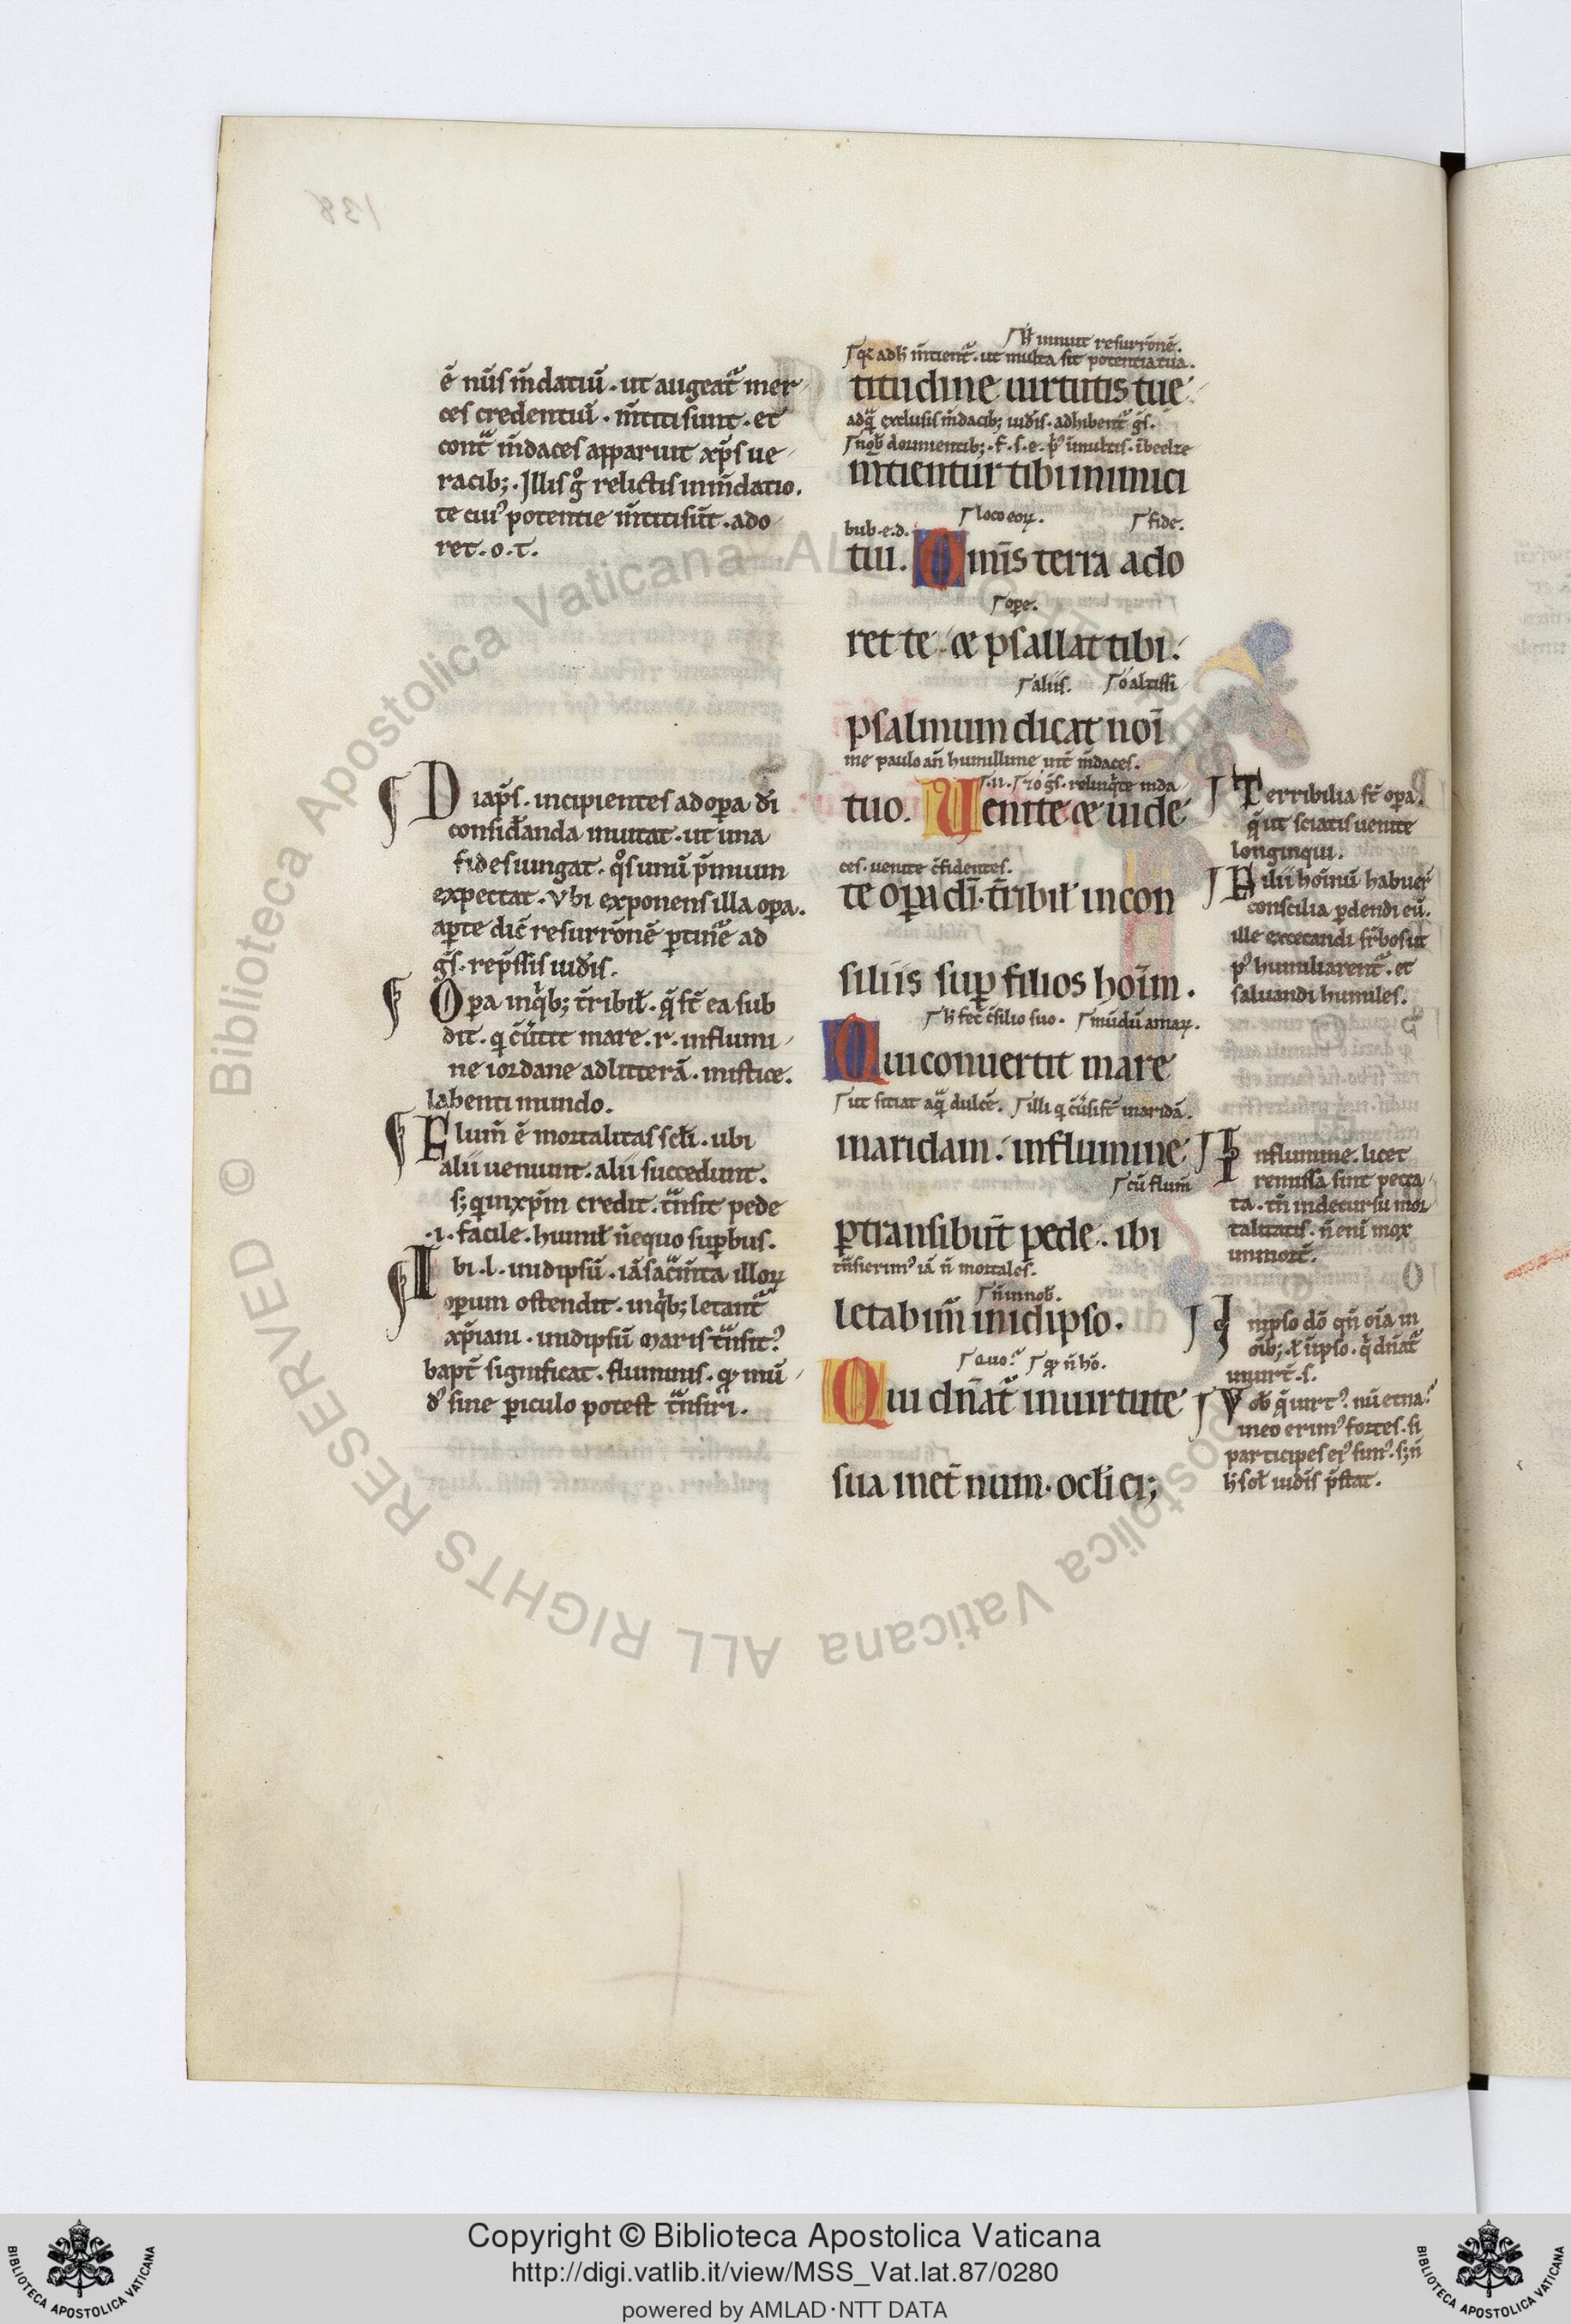 ē nu̅s m̅datiu̅ . ut augeat᷑ mer
ces credentiu̅ . m̅titi sunt . et
cont᷑ m̅daces apparuit xp̅s ue
racib; . Illis g̊ relictis in m̅datio.
te cui᷒ potentie m̅titi su̅t . ado
ret . o . t .
D iaps̅ . incipientes ad opa d̅i
considanda inuitat . ut una
fides iungat . q̊s unu̅ p̅mium
expectat . Vbi exponens illa opa .
apte dic̅ resurro̅ne̅ ptine᷑ ad
gs̅ . rep̅ssis iud̅is .
O pa in qib; t̅ribil̅ . q̅ st̅ ea sub
dit . q c̅u̅tit mare . r . in flumi
ne iordane ad littera̅ . mistice .
labenti mundo .
F lum̅ e̅ mortalitas scl̅i . ubi
alii ueniunt . alii succedunt .
s; qui in xp̅m credit . t᷑nsit pede
.i. facile . humil̅ n̅ equo supbus .
I bi . l . in idipsu̅ . ia̅ sac᷑m̅ta illoꝝ
opum ostendit . in qib; letant᷑
xp̅iani . in idipsu̅ maris t᷑nsit᷒
bapt̅ significat . fluminis . qꝫ mu̅
d᷒ sine piculo potest t᷑nsiri .
h̅ innuit resurro̅ne̅ .
qꝛ ad h̅ m̅tient᷑ . ut multa sit potentia tua .
titudine uirtutis tue
ad q̅ exclusis m̅dacib; iud̅is . adhibent᷑ gs̅ .
nob̅ dormientib; . f . s . e . p᷒ i̅ multis . i̅ beelze
m̅tientur tibi inimici
bub . e . d .
loco eoꝝ .
fide .
tui . O mi̅s terra ado
ope .
ret te & psallat tibi .
aliis .
o altissi
psalmum dicat noi̅
me paulo an̅ humillime ut̅ m̅daces .
tuo . U enite & uide
ces . uenite c̅fidentes .
te opa di̅ . t̅ribil̅ in con
siliis sup filios hoi̅m .
h̅ fec̅ c̅silio suo .
mu̅du̅ amaꝝ .
Q ui conuertit mare
ut sitiat aq̅ dulce̅ .
illi q c̅u̅si st̅ in arida̅ .
in aridam . in flumine
cu̅ flum̅
ptransibu̅t pede . ibi
t᷑nsierim᷒ ia̅ n̅ mortales .
n̅ in nob̅ .
letabim̅ in idipso .
a uo᷒ .
qꝫ n̅ ho̅ .
Q ui dn̅at᷑ in uirtute
sua in et̅num . ocl̅i ei᷒
T erribilia st̅ opa .
q̅ ut sciatis uenite
longinqui .
F ilii hoi̅nu̅ habuer̅
conscilia pdendi eu̅ .
ille excecandi sr̅bos ut
p᷒ humiliarent᷑ . et
saluandi humiles .
I n flumine . licet
remissa sint pecca
ta . tn̅ in decursu mor
talitatis . n̅ eni̅ mox
inmort̅ .
I n ipso do̅ qn̅ oi̅a in
oi̅b; . ł i̅ ipso . q dn̅at᷑
in uirt̅ . s .
V ob̅ q̅ uirt᷒ . nu̅ et na᷒
in eo erim᷒ fortes . si
participes ei᷒ sum᷒ . s; n̅
h̅ sol̅ iud̅is p̅stat .
© Biblioteca Apostolica Vaticana ALL RIGHTS RESERVED
Biblioteca Apostolica Vaticana ALL RIGHTS RESERVED
BIBLIOTECA APOSTOLICA VATICANA
Copyright © Biblioteca Apostolica Vaticana
http://digi.vatlib.it/view/MSS_Vat.lat.87/0280
powered by AMLAD·NTT DATA
BIBLIOTECA APOSTOLICA VATICANA